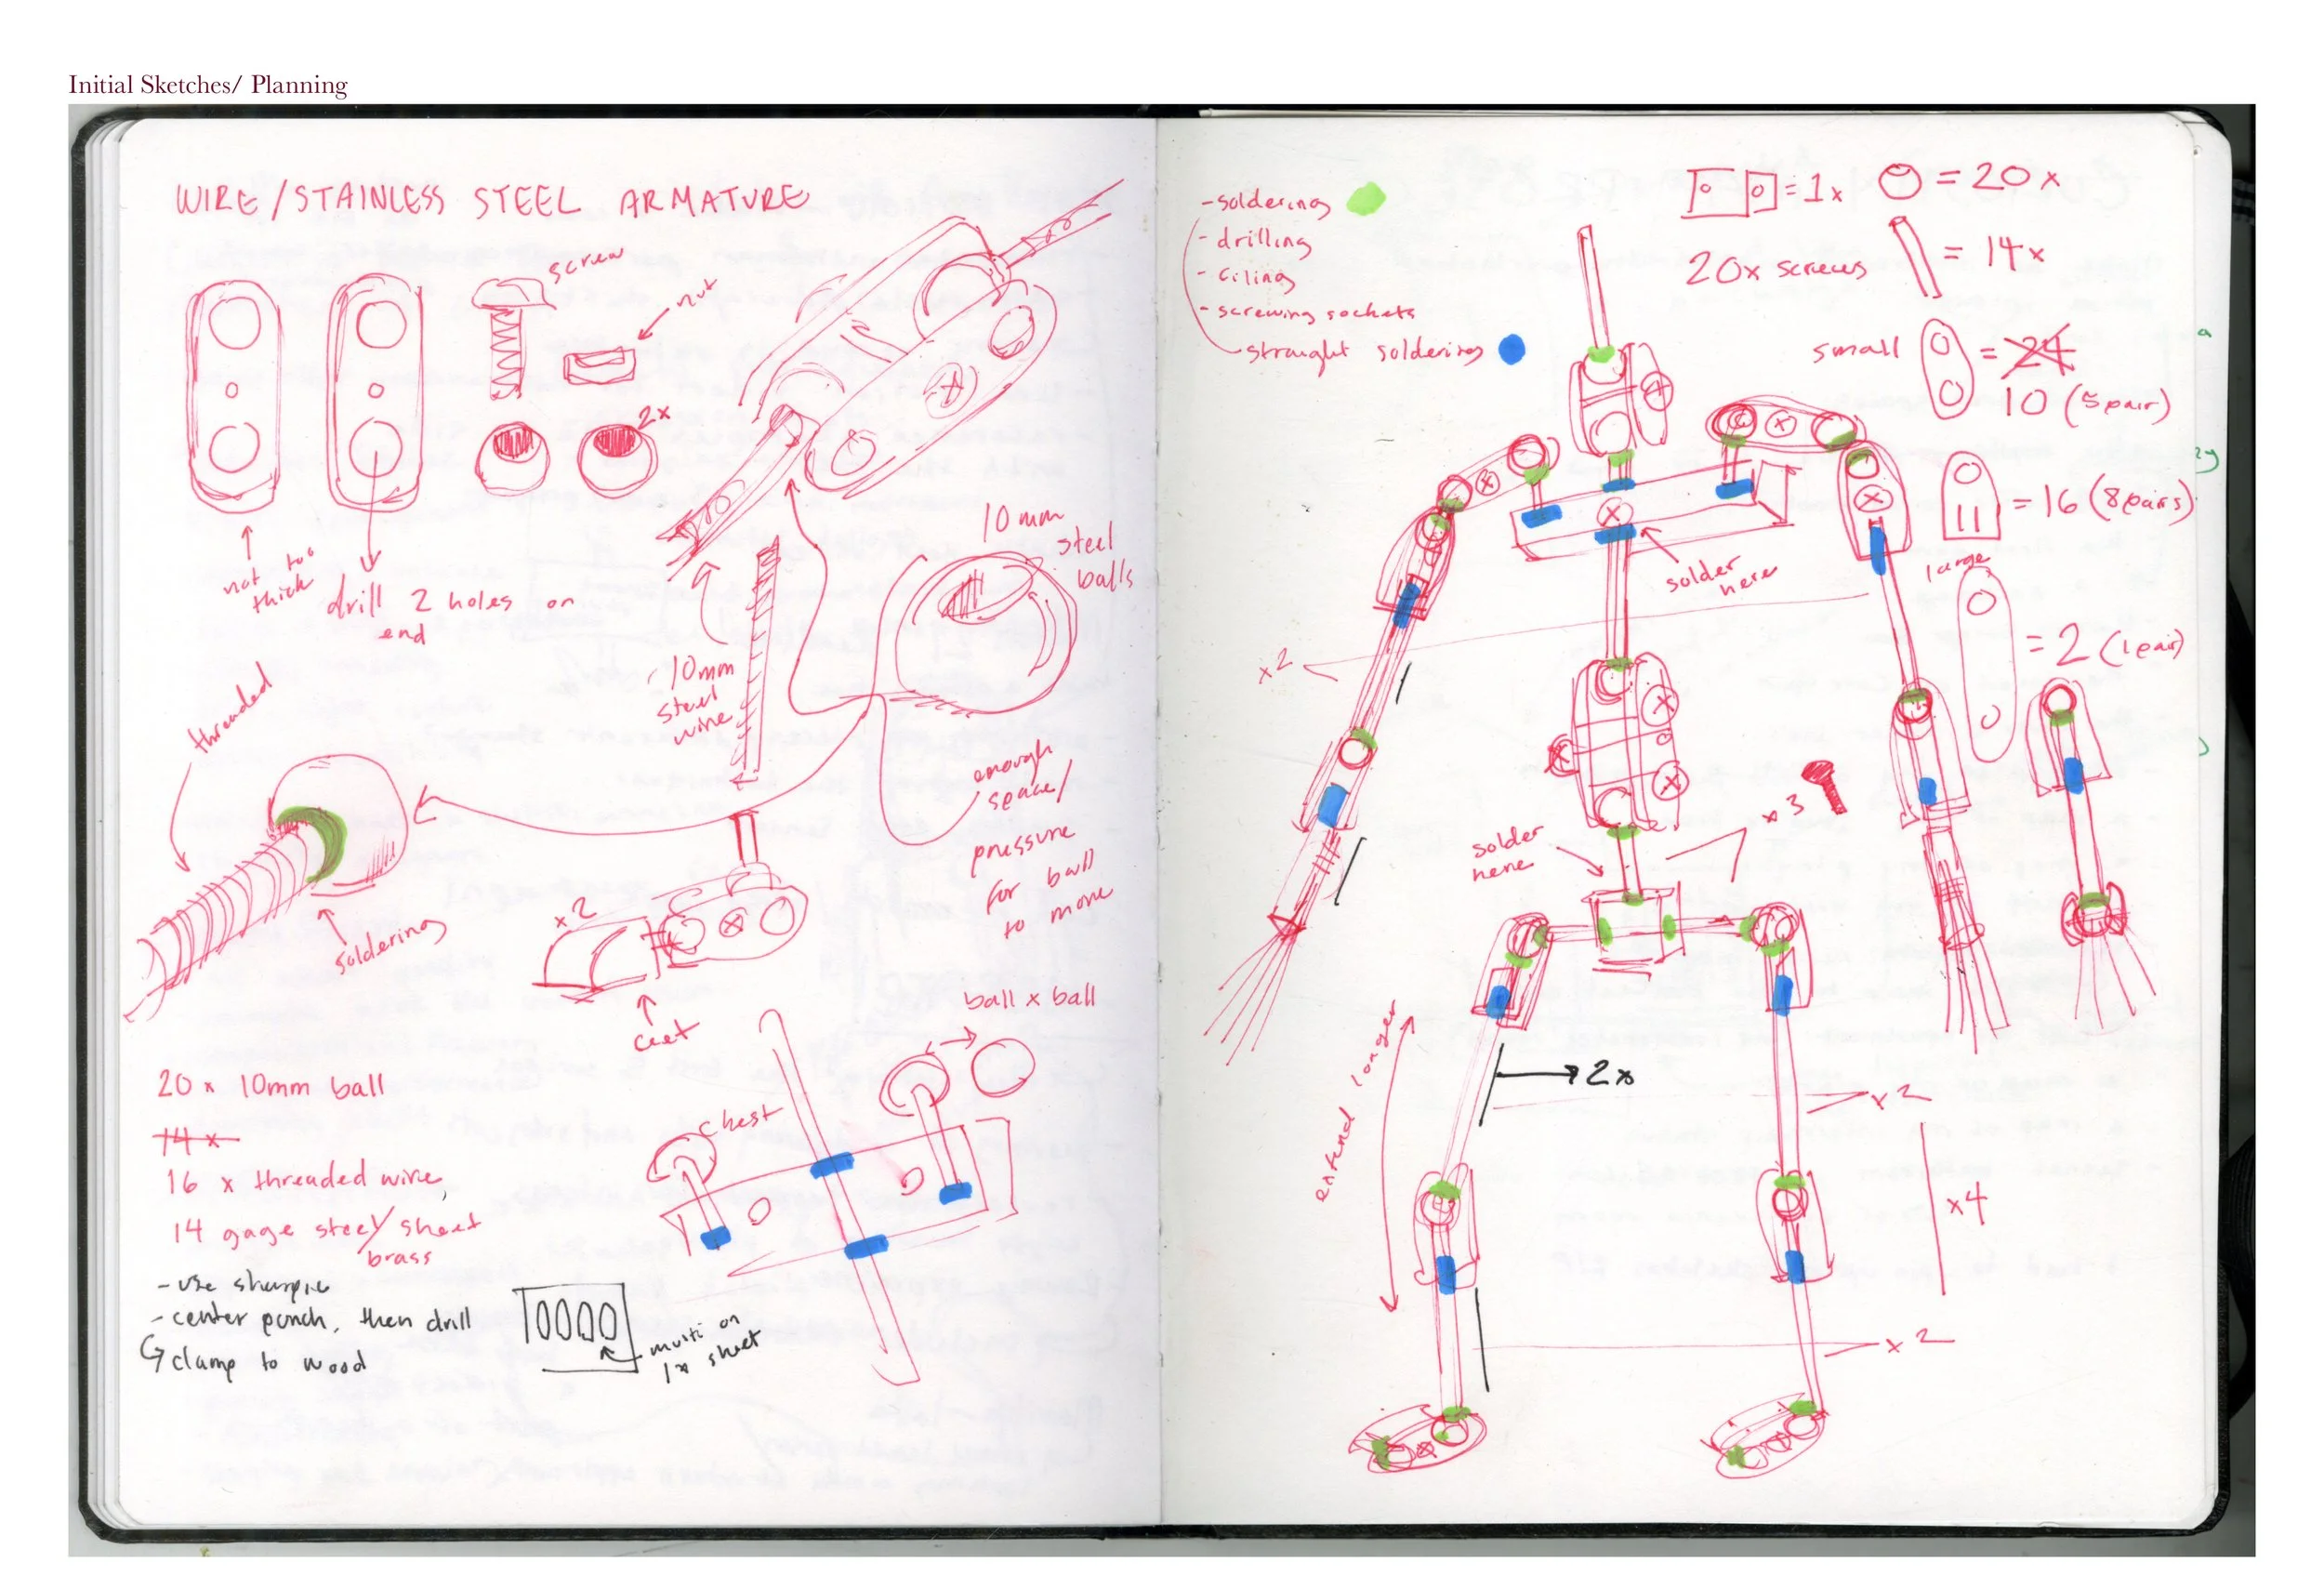 Initial Sketches/ Planning
WIRE/STAINLESS STEEL ARMATURE
screw
nut
2x
not too
thick
drill 2 holes on
end
10mm
steel
wire
10mm
steel
balls
threaded
soldering
enough
space/
pressure
for ball
to move
x2
feet
ball x ball
chest
20 x 10mm ball
14 x
16 x threaded wire
14 gage steel/sheet
brass
- use sharpie
- center punch, then drill
clamp to wood
multi on
1x sheet
- soldering
- drilling
- filing
- screwing sockets
- straight soldering
= 1x
= 20x
20x screws
= 14x
small
= 24
10 (5 pair)
= 16 (8 pairs)
large
= 2 (1 pair)
solder
here
x2
x3
solder
here
extend longer
2x
x2
x4
x2